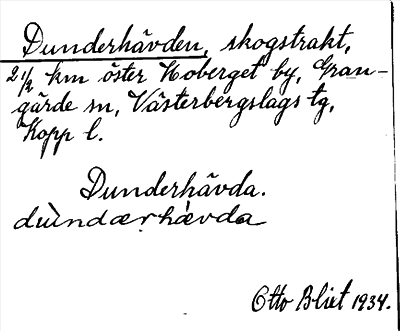 Dunderhävden, skogstrakt,
2 1/2 km öster Hoberget by, Gran-
gärde sn, Västerbergslags tg,
Kopp l.
Dunderhävda.
du̇ndærhævda
Otto Blixt 1934.